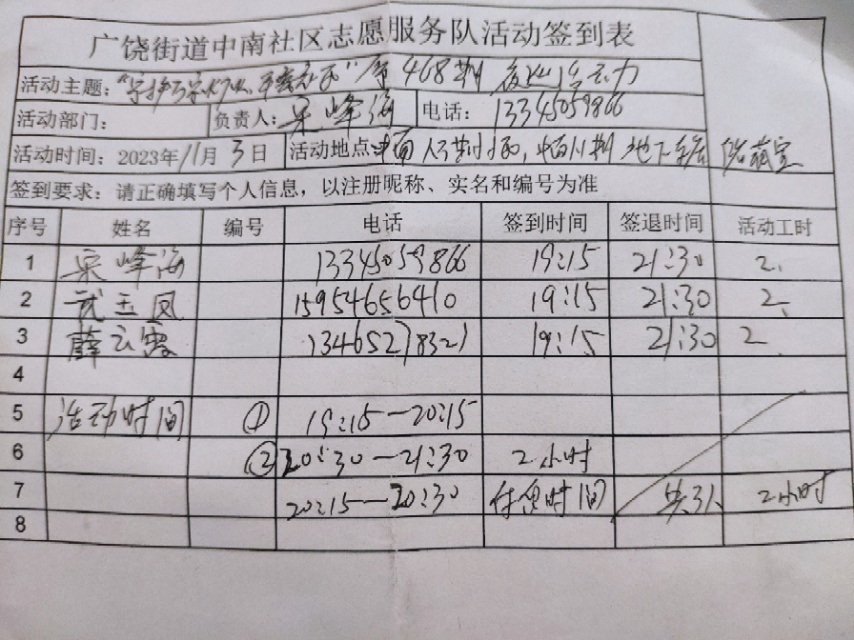 广饶街道中南社区志愿服务队活动签到表
活动主题：“守护万家灯火，平安 第468期 夜巡
活动部门： 负责人：宋峰海 电话：13345059866
活动时间：2023年11月3日 活动地点 地下车库 储藏室
签到要求：请正确填写个人信息，以注册昵称、实名和编号为准
序号 姓名 编号 电话 签到时间 签退时间 活动工时
1 宋峰海 13345059866 19:15 21:30 2.
2 武玉凤 15954656410 19:15 21:30 2.
3 薛云霞 13465278321 19:15 21:30 2.
4
5 活动时间 ① 19:15—20:15
6 ② 20:30—21:30 2小时
7 20:15—20:30 休息时间 共3人 2小时
8